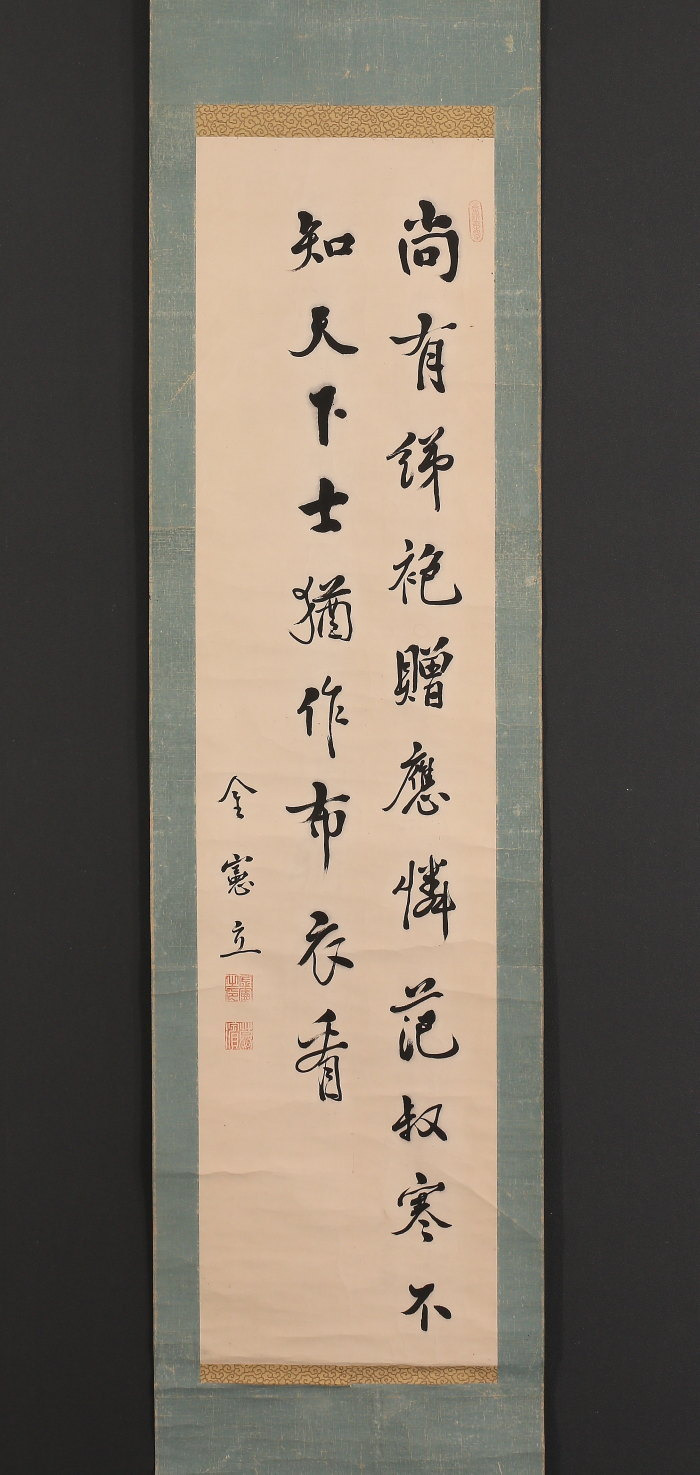 尚有綈袍贈應憐范叔寒不
知天下士猶作布衣看
金憲立